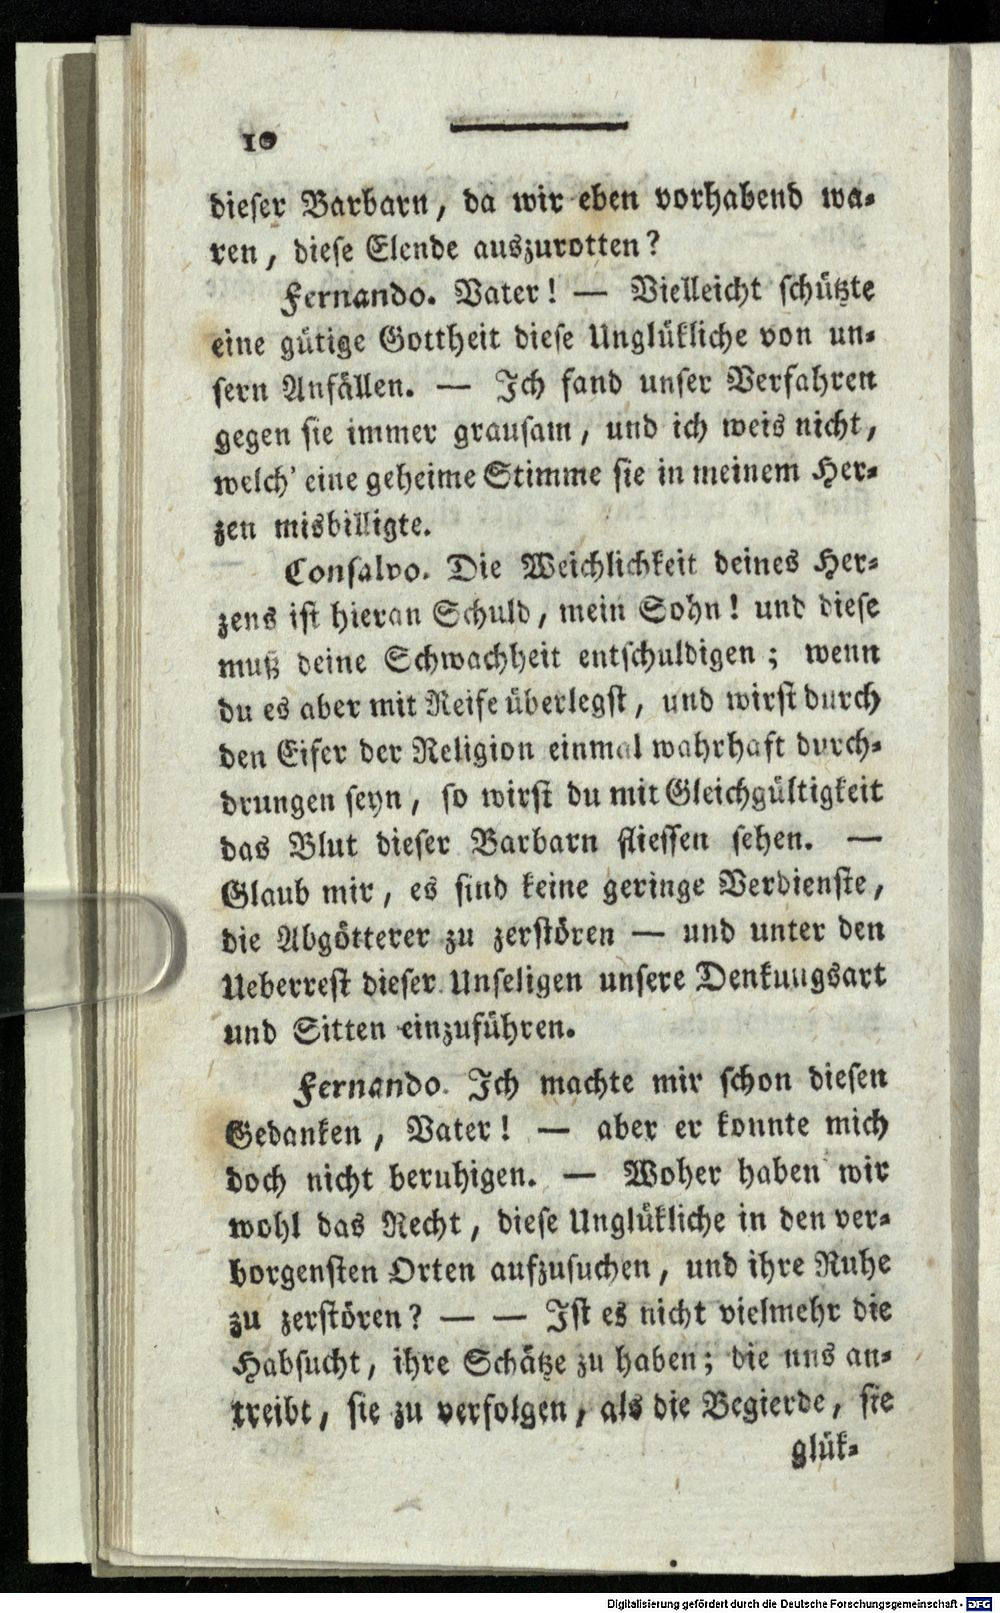 10
dieser Barbarn, da wir eben vorhabend wa-
ren, diese Elende auszurotten?
Fernando. Vater! — Vielleicht schützte
eine gütige Gottheit diese Unglükliche von un-
sern Anfällen. — Ich fand unser Verfahren
gegen sie immer grausam, und ich weis nicht,
welch' eine geheime Stimme sie in meinem Her-
zen misbilligte.
Consalvo. Die Weichlichkeit deines Her-
zens ist hieran Schuld, mein Sohn! und diese
muß deine Schwachheit entschuldigen; wenn
du es aber mit Reife überlegst, und wirst durch
den Eifer der Religion einmal wahrhaft durch-
drungen seyn, so wirst du mit Gleichgültigkeit
das Blut dieser Barbarn fliessen sehen. —
Glaub mir, es sind keine geringe Verdienste,
die Abgötterer zu zerstören — und unter den
Ueberrest dieser Unseligen unsere Denkungsart
und Sitten einzuführen.
Fernando. Ich machte mir schon diesen
Gedanken, Vater! — aber er konnte mich
doch nicht beruhigen. — Woher haben wir
wohl das Recht, diese Unglükliche in den ver-
borgensten Orten aufzusuchen, und ihre Ruhe
zu zerstören? — — Ist es nicht vielmehr die
Habsucht, ihre Schätze zu haben; die uns an-
treibt, sie zu verfolgen, als die Begierde, sie
glük-
Digitalisierung gefördert durch die Deutsche Forschungsgemeinschaft - DFG